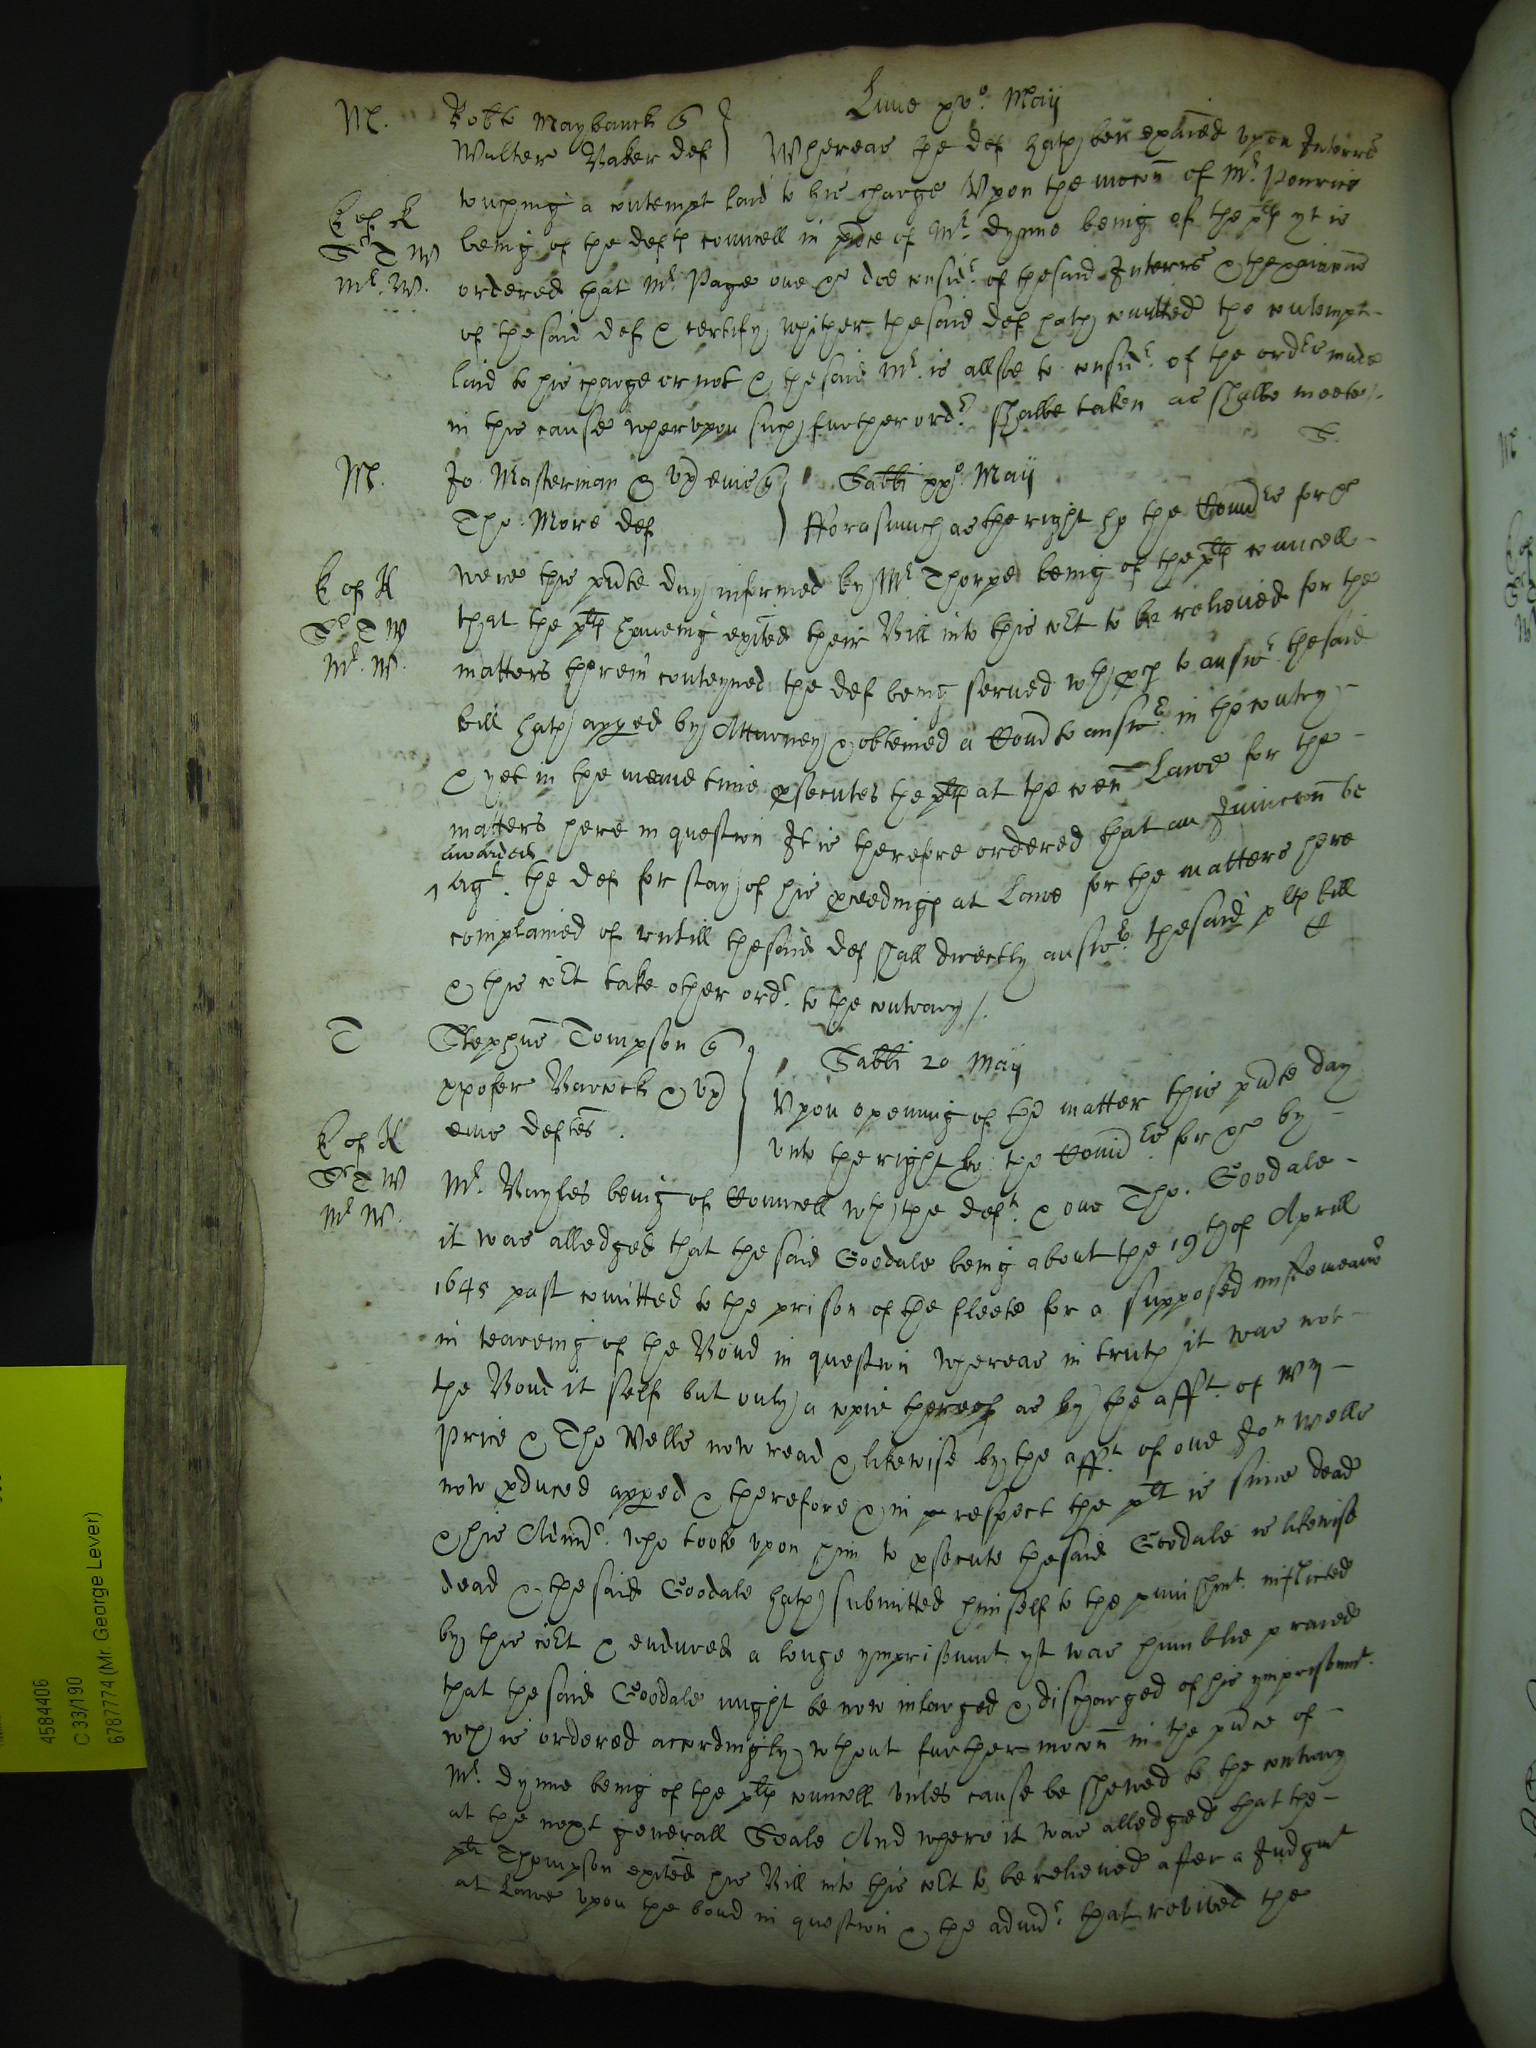 M. Robte Maybanck q
Lune xvo. Maij
Walter Baker def } Whereas the def hath ben exaied upon Interrs
touching a contempt laid to his charge Upon the mocon of Mr. Penrice
E of K
being of the defts councell in pnce of Mr. dynne being of the plts yt is
Sr T W
ordered that Mr. Page one &c doe consider of the said Interrs & thexaiacons
Mr. W.
of the said def & certify whither the said def hath comitted the contempt
laid to his charge or not & the said Mr. is allsoe to considr. of the ordrs made
in this cause wherupon such further ordr. shalbe taken as shalbe meete /.
S.
M. Jo. Masterman & ux eius q } Sabbi xxo. Maij
Tho: More def } Fforasmuch as the right ho the Comrs for &c
E of K
were this pnte day informed by Mr. Thorpe being of the plts councell
Sr T W
that the plts haveing exited their Bill into this cort to be relieved for the
Mr. W.
matters therein conteyned the def being served wth pces to answr. the said
bill hath apped by Attorney & obteined a Comd to answr. in the contry
& yet in the meane time psecutes the plts at the coen Lawe for the
matters here in question It is therefore ordered that an Iniunccon be
awarded
^ agt. the def for stay of his pceedings at Lawe for the matters here
complained of untill the said def shall directly answr. the said plts bill
& this cort take other ordr. to the contrary /.
T Stephus Tompson q } Sabbi 20 Maij
xpofer Barcock & ux } Upon opening of the matter this pnte day
eius deftes. } unto the right ho: the Comrs for &c by
E of K
Sr T W
Mr. Bayles being of Councell wth the deft. & one Tho. Goodale
Mr W.
it was alledged that the said Goodale being about the 19th of Aprill
1645 past comitted to the prison of the fleete for a supposed misdemeanr
in teareing of the Bond in question whereas in truth it was not
the Bond it self but only a copie thereof as by the afft. of Wm
Price & Tho Wells now read & likewise by the afft. of one Jon Wells
now pduced apped & therefore & in respect the plt is since dead
& his Admr. who tooke upon him to psecute the said Goodale is likewise
dead & the said Goodale hath submitted himself to the punishmt. inflicted
by this cort & endured a longe ymprisonmt yt was humblie praied
that the said Goodale might be now inlarged & discharged of his ymprisonmt.
wch is ordered accordingly wthout further mocon in the pnce of
Mr. dynne being of the plts councell unles cause be shewed to the contrary
at the next generall Seale And where it was alledged that the
plt Thompson exited his Bill into this cort to be relieved after a Judgmt
at Lawe upon the bond in question & the admr. that revived the
4584406
C 33/190
6787774 (Mr. George Lever)